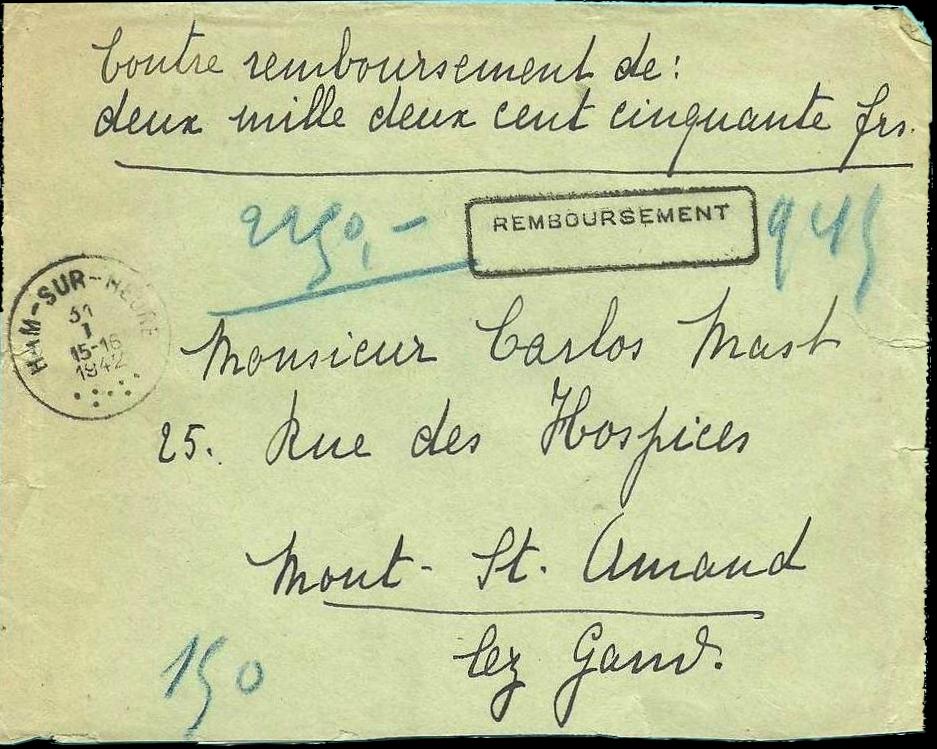 Contre remboursement de:
deux mille deux cent cinquante frs.
2250,-
REMBOURSEMENT
945
HAM-SUR-HEURE
31
1
15-16
1942
Monsieur Carlos Mast
25. Rue des Hospices
Mont-St. Amand
lez Gand.
150